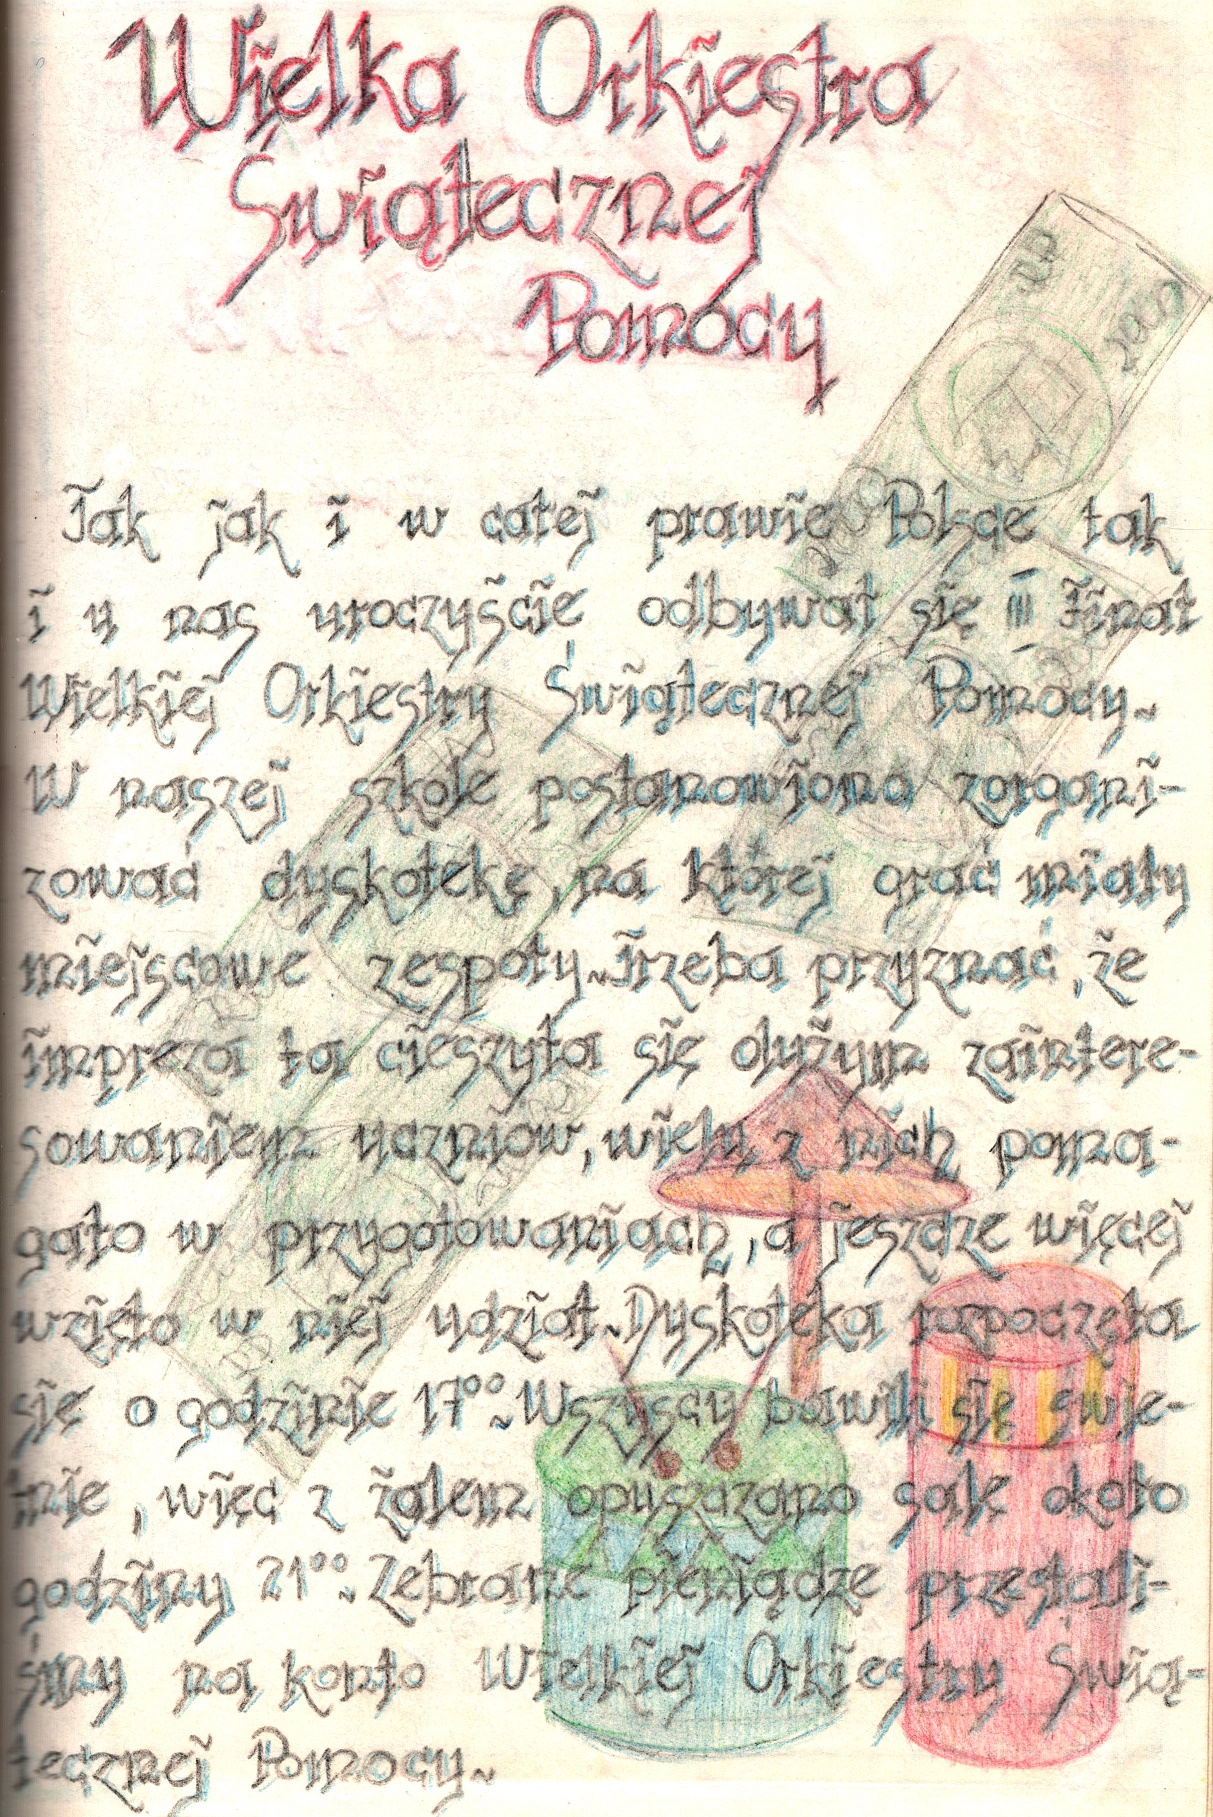 Wielka Orkiestra
Świątecznej
Pomocy
Tak jak i w całej prawie Polsce tak
i u nas uroczyście odbywał się III Finał
Wielkiej Orkiestry Świątecznej Pomocy.
W naszej szkole postanowiono zorgani-
zować dyskotekę, na której grać miały
miejscowe zespoły. Trzeba przyznać, że
impreza ta cieszyła się dużym zaintere-
sowaniem uczniów, wielu z nich poma-
gało w przygotowaniach, a jeszcze więcej
wzięło w niej udział. Dyskoteka rozpoczęła
się o godzinie 17⁰⁰. Wszyscy bawili się świe-
tnie, więc z żalem opuszczano salę około
godziny 21⁰⁰. Zebrane pieniądze przesłali-
śmy na konto Wielkiej Orkiestry Świą-
tecznej Pomocy.